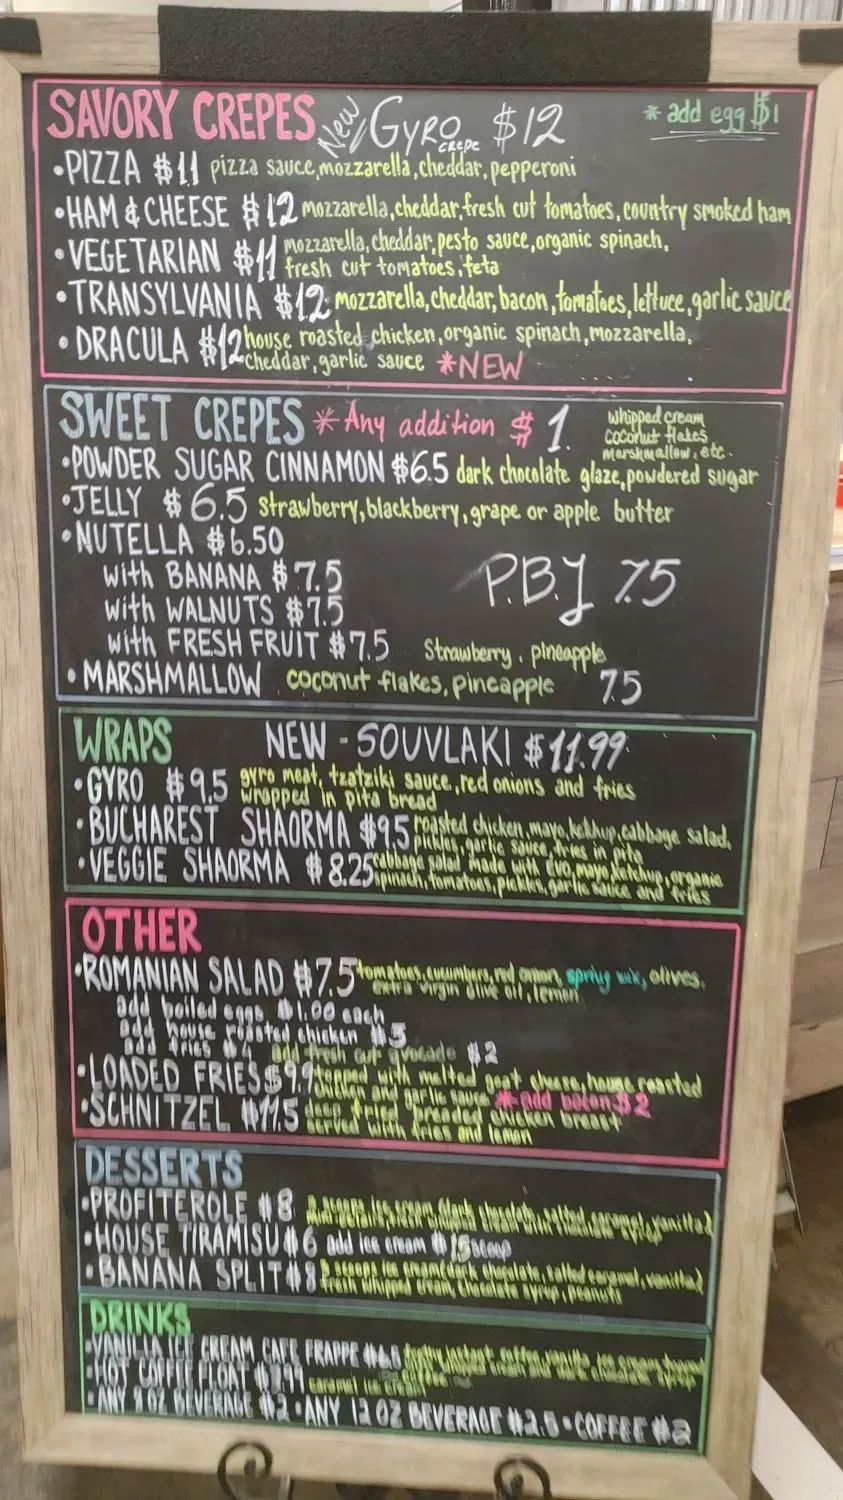 SAVORY CREPES New GYRO crepe $12 * add egg $1
•PIZZA $11 pizza sauce, mozzarella, cheddar, pepperoni
•HAM & CHEESE $12 mozzarella, cheddar, fresh cut tomatoes, country smoked ham
•VEGETARIAN $11 mozzarella, cheddar, pesto sauce, organic spinach,
fresh cut tomatoes, feta
•TRANSYLVANIA $12 mozzarella, cheddar, bacon, tomatoes, lettuce, garlic sauce
•DRACULA $12 house roasted chicken, organic spinach, mozzarella,
cheddar, garlic sauce *NEW
SWEET CREPES * Any addition $1. whipped cream
coconut flakes
marshmallow, etc.
•POWDER SUGAR CINNAMON $6.5 dark chocolate glaze, powdered sugar
•JELLY $6.5 strawberry, blackberry, grape or apple butter
•NUTELLA $6.50
with BANANA $7.5 P.B.J 7.5
with WALNUTS $7.5
with FRESH FRUIT $7.5 Strawberry, pineapple
•MARSHMALLOW coconut flakes, pineapple 7.5
WRAPS NEW - SOUVLAKI $11.99
•GYRO $9.5 gyro meat, tzatziki sauce, red onions and fries
wrapped in pita bread
•BUCHAREST SHAORMA $9.5 roasted chicken, mayo, ketchup, cabbage salad,
pickles, garlic sauce, fries in pita
•VEGGIE SHAORMA $8.25 cabbage salad made with EVO, mayo, ketchup, organic
spinach, tomatoes, pickles, garlic sauce and fries
OTHER
•ROMANIAN SALAD $7.5 tomatoes, cucumbers, red onion, spring mix, olives,
extra virgin olive oil, lemon
add boiled eggs $1.00 each
add house roasted chicken
add fries $4 add fresh cut avocado $2
•LOADED FRIES topped with melted goat cheese, house roasted
chicken and garlic sauce *add bacon $2
•SCHNITZEL $11.5 deep fried breaded chicken breast
served with fries and lemon
DESSERTS
•PROFITEROLE $8 scoops ice cream, dark chocolate, salted caramel, vanilla
•HOUSE TIRAMISU $6 add ice cream scoop
•BANANA SPLIT $8 scoops ice cream (dark chocolate, salted caramel, vanilla)
fresh whipped cream, chocolate syrup, peanuts
DRINKS
•VANILLA ICE CREAM CAFE FRAPPE
•HOT COFFEE FLOAT caramel ice cream
•ANY OZ BEVERAGE $2 •ANY 12 OZ BEVERAGE $2.5 •COFFEE $2